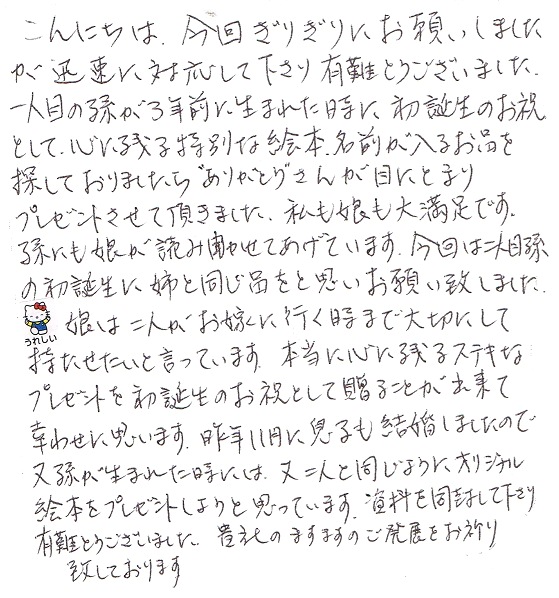 こんにちは、今回ぎりぎりにお願いしました
が迅速に対応して下さり有難とうございました。
一人目の孫が3年前に生まれた時に、初誕生のお祝
として、心に残る特別な絵本、名前が入るお品を
探しておりましたら"ありがとう"さんが目にとまり
プレゼントさせて頂きました。私も娘も大満足です。
孫にも娘が読み聞かせてあげています。今回は二人目孫
の初誕生に姉と同じ品をと思いお願い致しました。
うれしい 娘は二人がお嫁に行く時まで大切にして
持たせたいと言っています。本当に心に残るステキな
プレゼントを初誕生のお祝として贈ることが出来て
幸わせに思います。昨年11月に児るも結婚しましたので
又孫が生まれた時には、又二人と同じようにオリジナル
絵本をプレゼントしようと思っています。資料を同封して下さり
有難とうございました。貴社のますますのご発展をお祈り
致しております